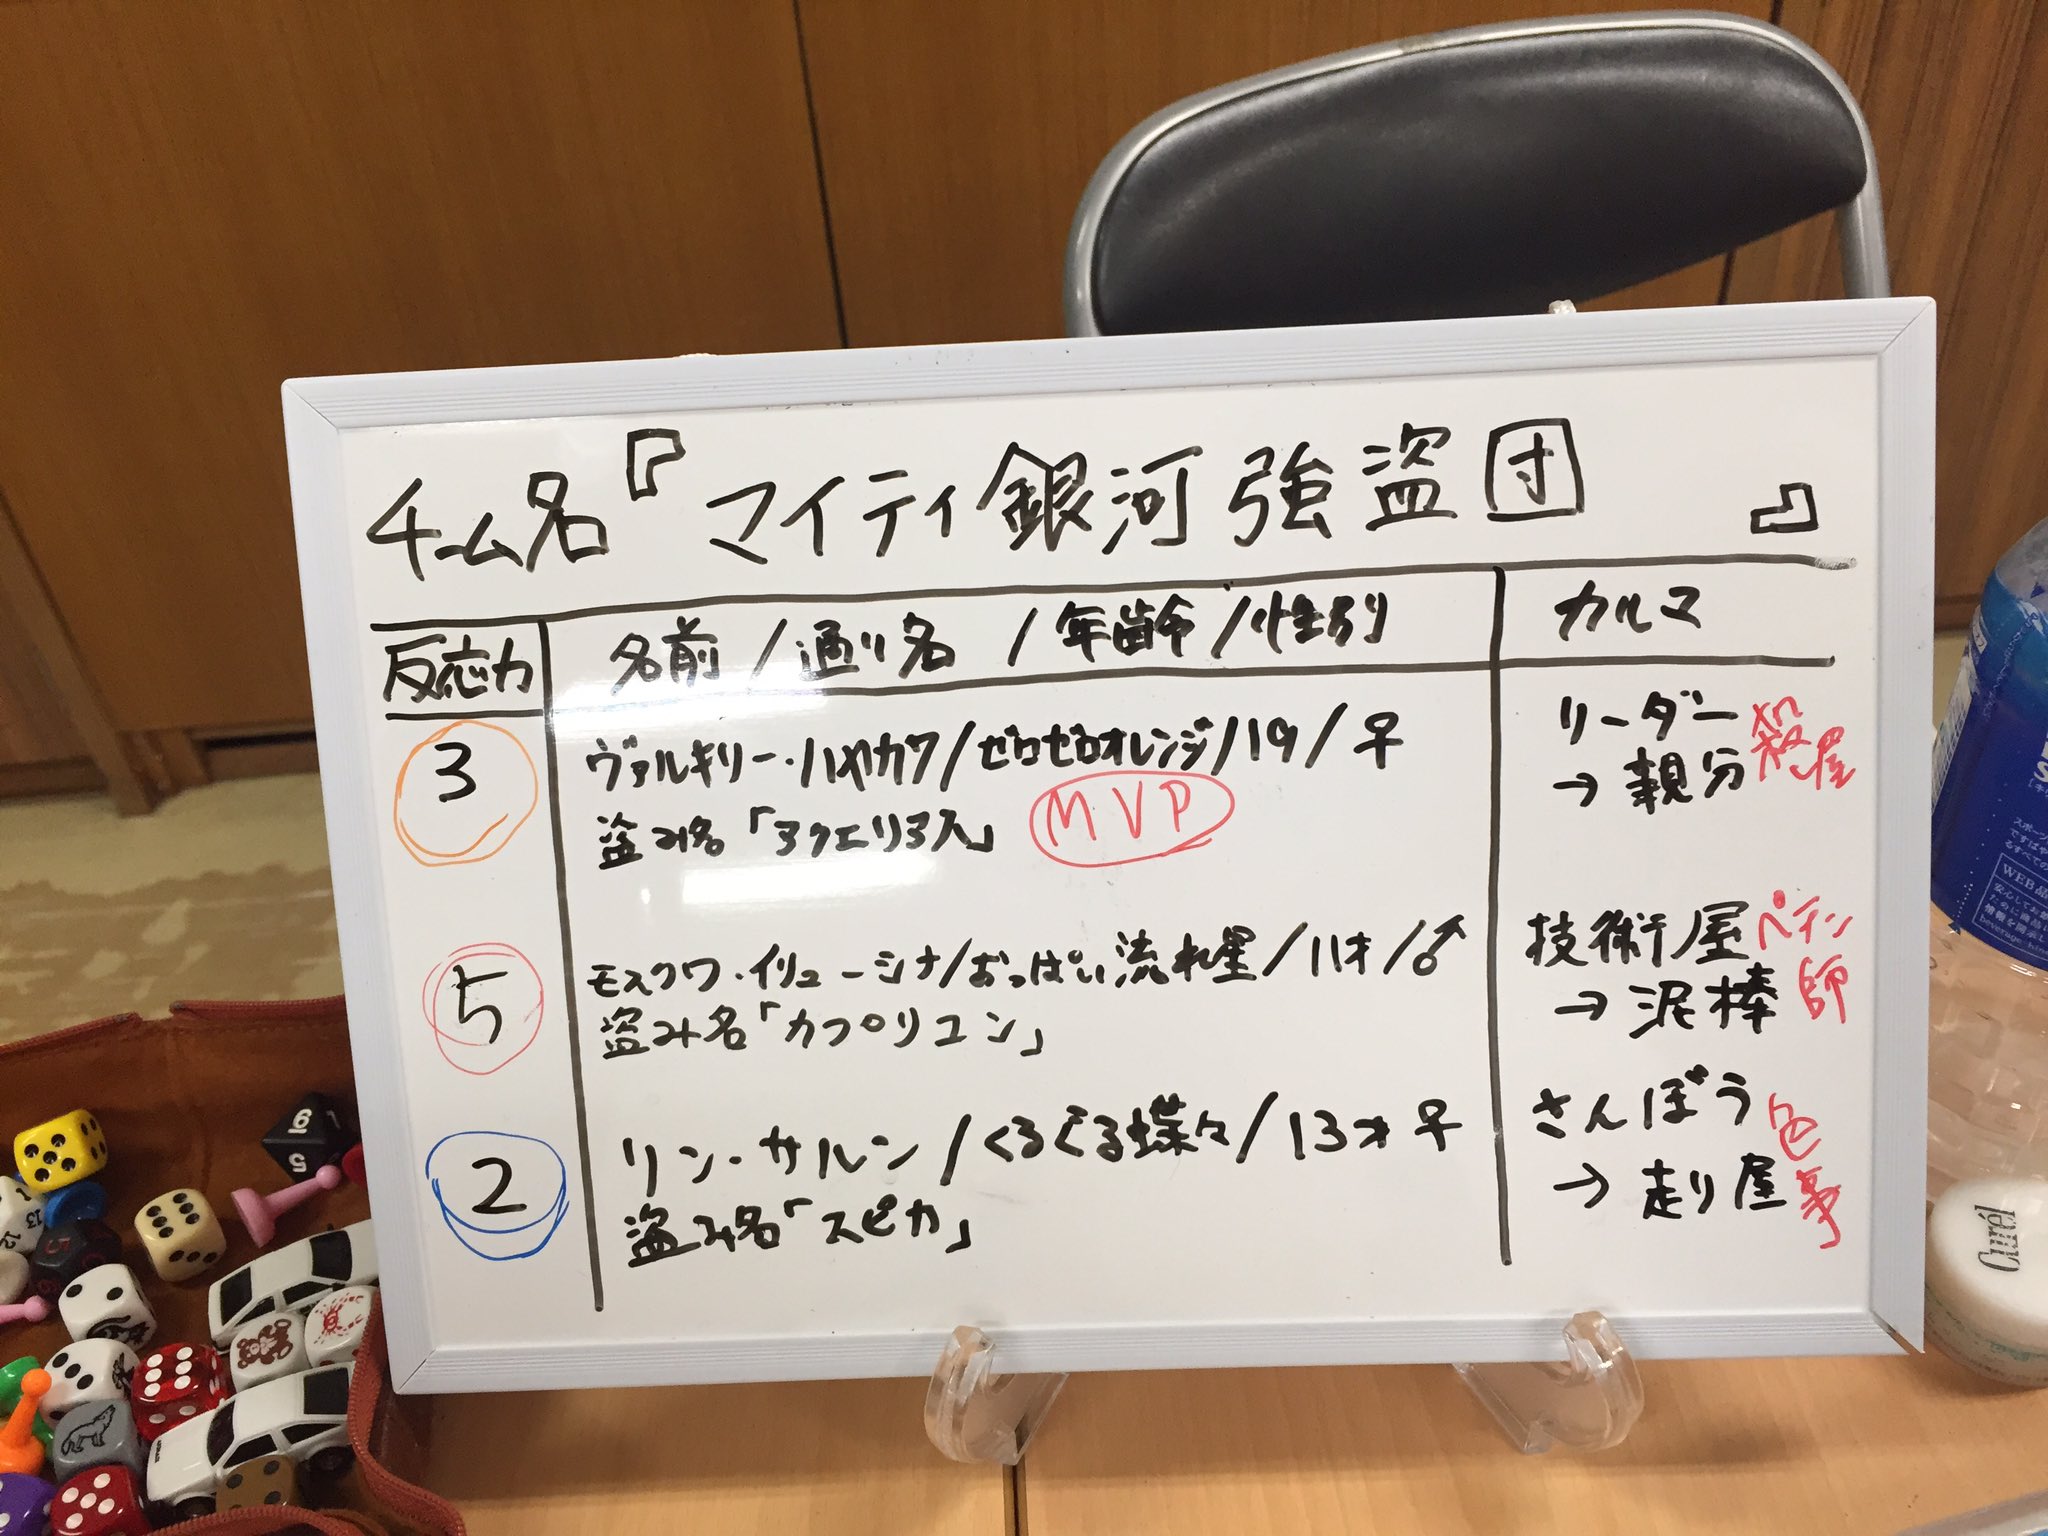 チーム名『マイティ銀河強盗団』
反応力 名前/通り名/年齢/性別 カルマ
3 ヴァルキリー・ハヤカワ/ゼロゼロオレンジ/19/♀ リーダー
盗み名「アクエリアス」 MVP →親分 殺し屋
5 モスクワ・イリューシナ/おっぱい流れ星/11才/♂ 技術屋 ペテン師
盗み名「カプリコン」 →泥棒
2 リン・サルン/くるぐる蝶々/13才♀ さんぼう 色事
盗み名「スピカ」 →走り屋
Curél
WEB